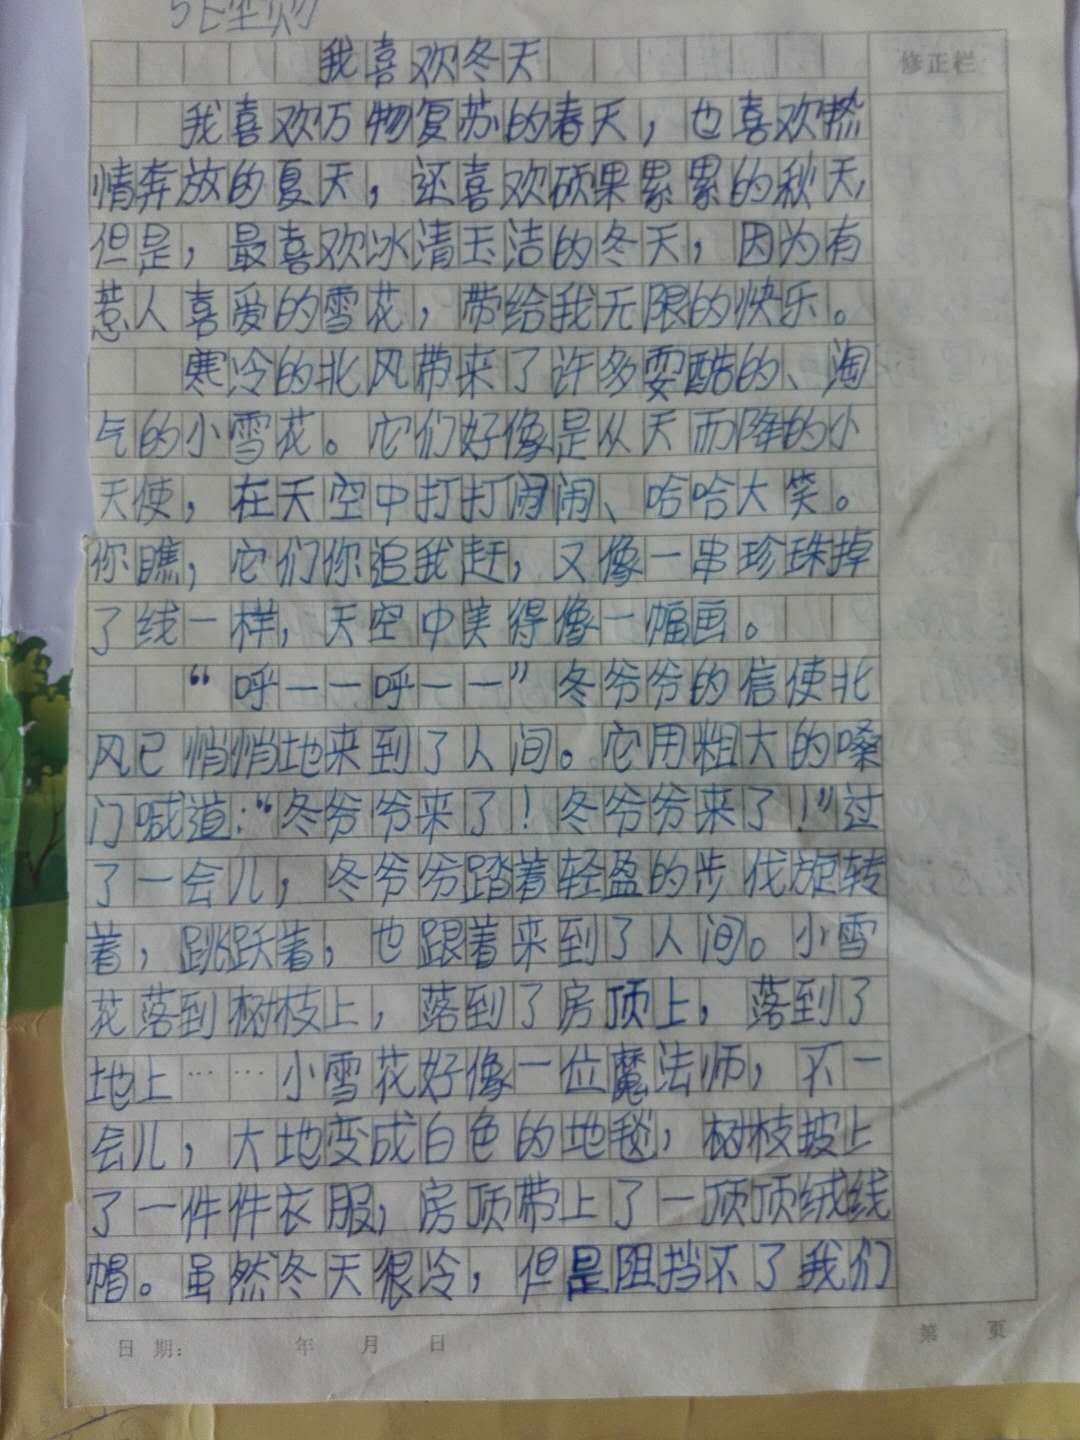 我喜欢冬天
修正栏
我喜欢万物复苏的春天，也喜欢热
情奔放的夏天，还喜欢硕果累累的秋天，
但是，最喜欢冰清玉洁的冬天，因为有
惹人喜爱的雪花，带给我无限的快乐。
寒冷的北风带来了许多耍酷的、淘
气的小雪花。它们好像是从天而降的小
天使，在天空中打打闹闹、哈哈大笑。
你瞧，它们你追我赶，又像一串珍珠掉
了线一样，天空中美得像一幅画。
“呼——呼——”冬爷爷的信使北
风已悄悄地来到了人间。它用粗大的嗓
门喊道：“冬爷爷来了！冬爷爷来了！”过
了一会儿，冬爷爷踏着轻盈的步伐旋转
着，跳跃着，也跟着来到了人间。小雪
花落到树枝上，落到了房顶上，落到了
地上……小雪花好像一位魔法师，不一
会儿，大地变成白色的地毯，树枝披上
了一件件衣服，房顶带上了一顶顶绒线
帽。虽然冬天很冷，但是阻挡不了我们
日期： 年 月 日
第 页